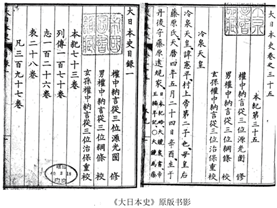 大日本史卷之三十五
本紀第三十五
權中納言從三位源光圀 修
男權中納言從三位綱條 校
玄孫權中納言從三位治保 重校
冷泉天皇
冷泉天皇諱憲平村上帝第二子也母皇后
藤原氏天曆四年五月二十四日
大日本史目錄一
權中納言從三位源光圀 修
男權中納言從三位綱條 校
玄孫權中納言從三位治保 重校
本紀七十三卷
列傳一百七十卷
志一百二十六卷
表二十八卷
凡三百九十七卷
《大日本史》原版书影